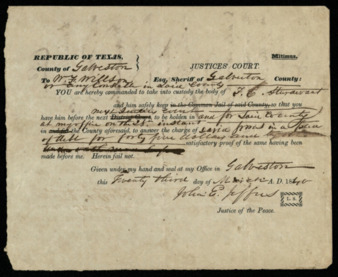 REPUBLIC OF TEXAS, JUSTICES COURT. Mittimus.
County of Galveston
To W. F. Willson Esq. Sheriff of Galveston County:
or any Constable in said County
YOU are hereby commanded to take into custody the body of
and him safely keep in the Common Jail of said County, so that you
have him before the next to be holden in and for said County
at my office on the instant
in the County aforesaid, to answer the charge of
of debt for forty five dollars satisfactory proof of the same having been
made before me. Herein fail not.
Given under my hand and seal at my Office in Galveston
this Twenty third day of A. D. 1840
John E.
L. S.
Justice of the Peace.